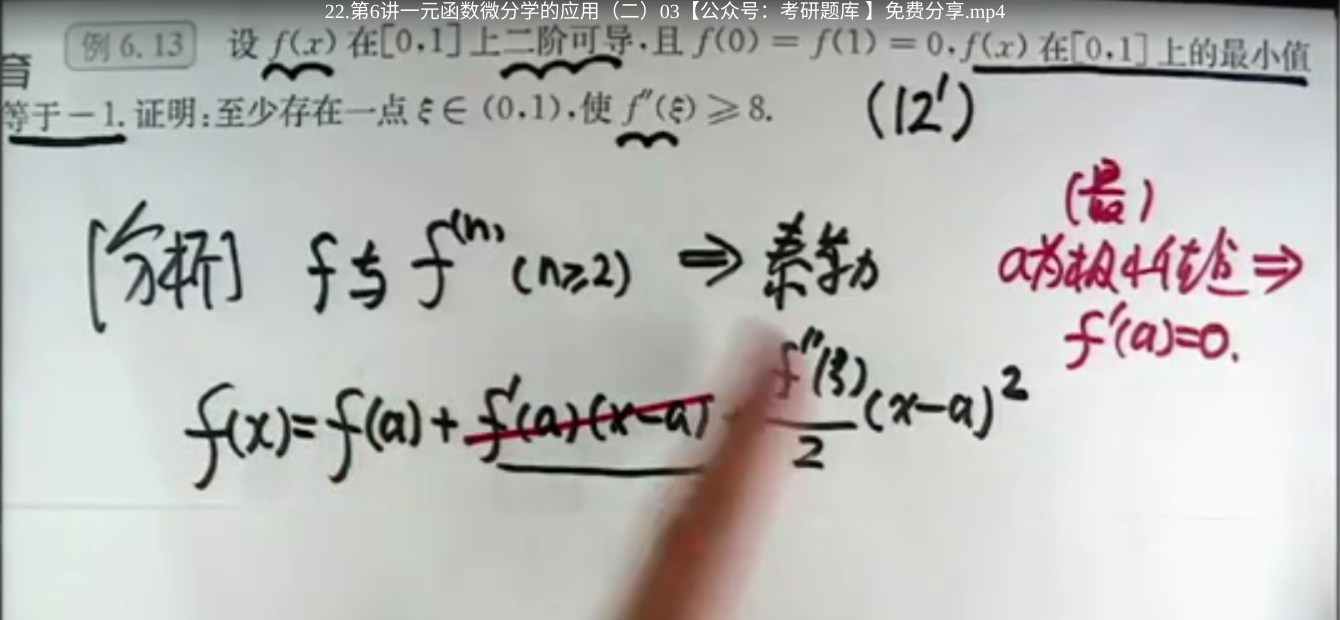 22.第6讲一元函数微分学的应用（二）03【公众号：考研题库 】免费分享.mp4
育
例 6.13 设 f(x) 在[0,1]上二阶可导,且 f(0) = f(1) = 0,f(x) 在[0,1] 上的最小值
等于－1. 证明:至少存在一点 ξ ∈ (0,1),使 f″(ξ) ⩾ 8.
(12′)
[分析] f 与 f⁽ⁿ⁾ (n≥2) ⇒ 泰勒
(最)
a为极小值点 ⇒
f′(a)=0.
f(x)=f(a)+f′(a)(x-a) f″(ξ)/2 (x-a)²